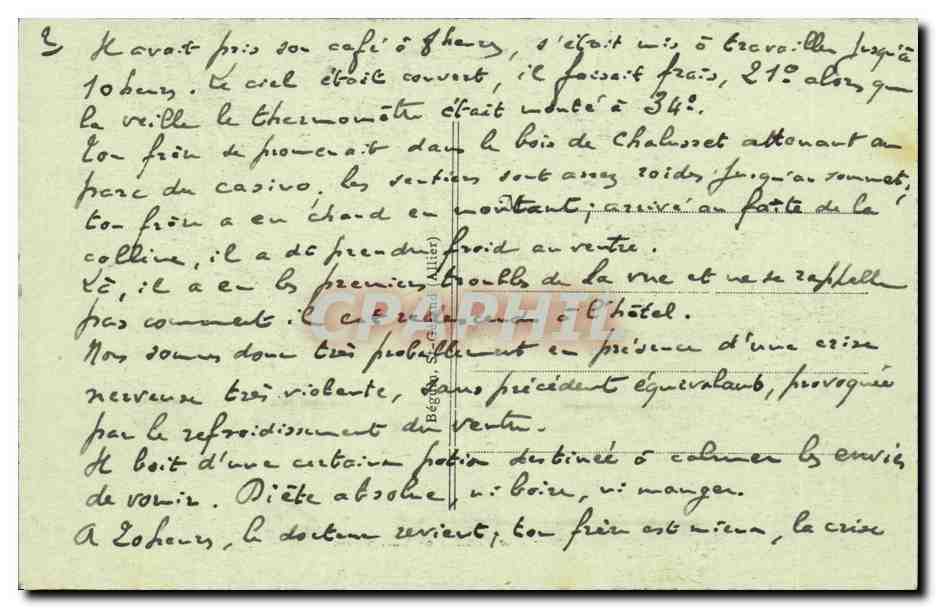 2
Il avait pris son café à 8 heures, s'était mis à travailler jusqu'à
10 heures. Le ciel était couvert, il faisait frais, 21° alors que
la veille le thermomètre était monté à 34°.
Ton frère se promenait dans le bois de Chalusset attenant au
parc du casino. Les sentiers sont assez roides jusqu'au sommet;
ton frère a eu chaud en montant; arrivé au faîte de la
colline, il a dû prendre froid au ventre.
Là, il a eu les premiers troubles de la vue et ne se rappelle
pas comment il est redescendu à l'hôtel.
Nous sommes donc très probablement en présence d'une crise
nerveuse très violente, sans précédent équivalant, provoquée
par le refroidissement du ventre.
Il boit d'une certaine potion destinée à calmer les envies
de vomir. Diète absolue, ni boire, ni manger.
A 20 heures, le docteur revient; ton frère est mieux, la crise
Béguin, St-Gérand Allier)
CPAPHIL